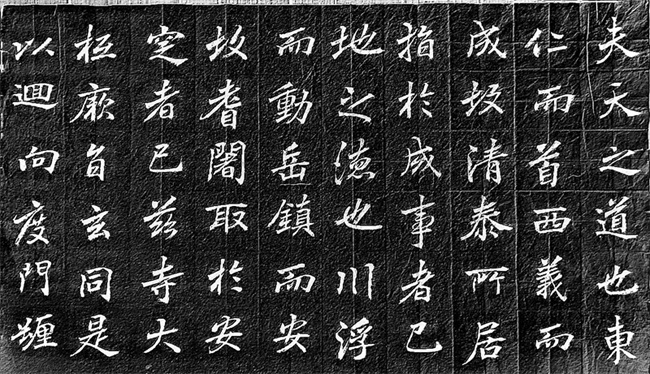 夫天之道也東
仁而首西義而
成故清泰所居
指於成事者已
地之德也川浮
而動岳鎮而安
故耆闍取於安
定者已兹寺大
柢厥旨玄同是
以迴向度門躔